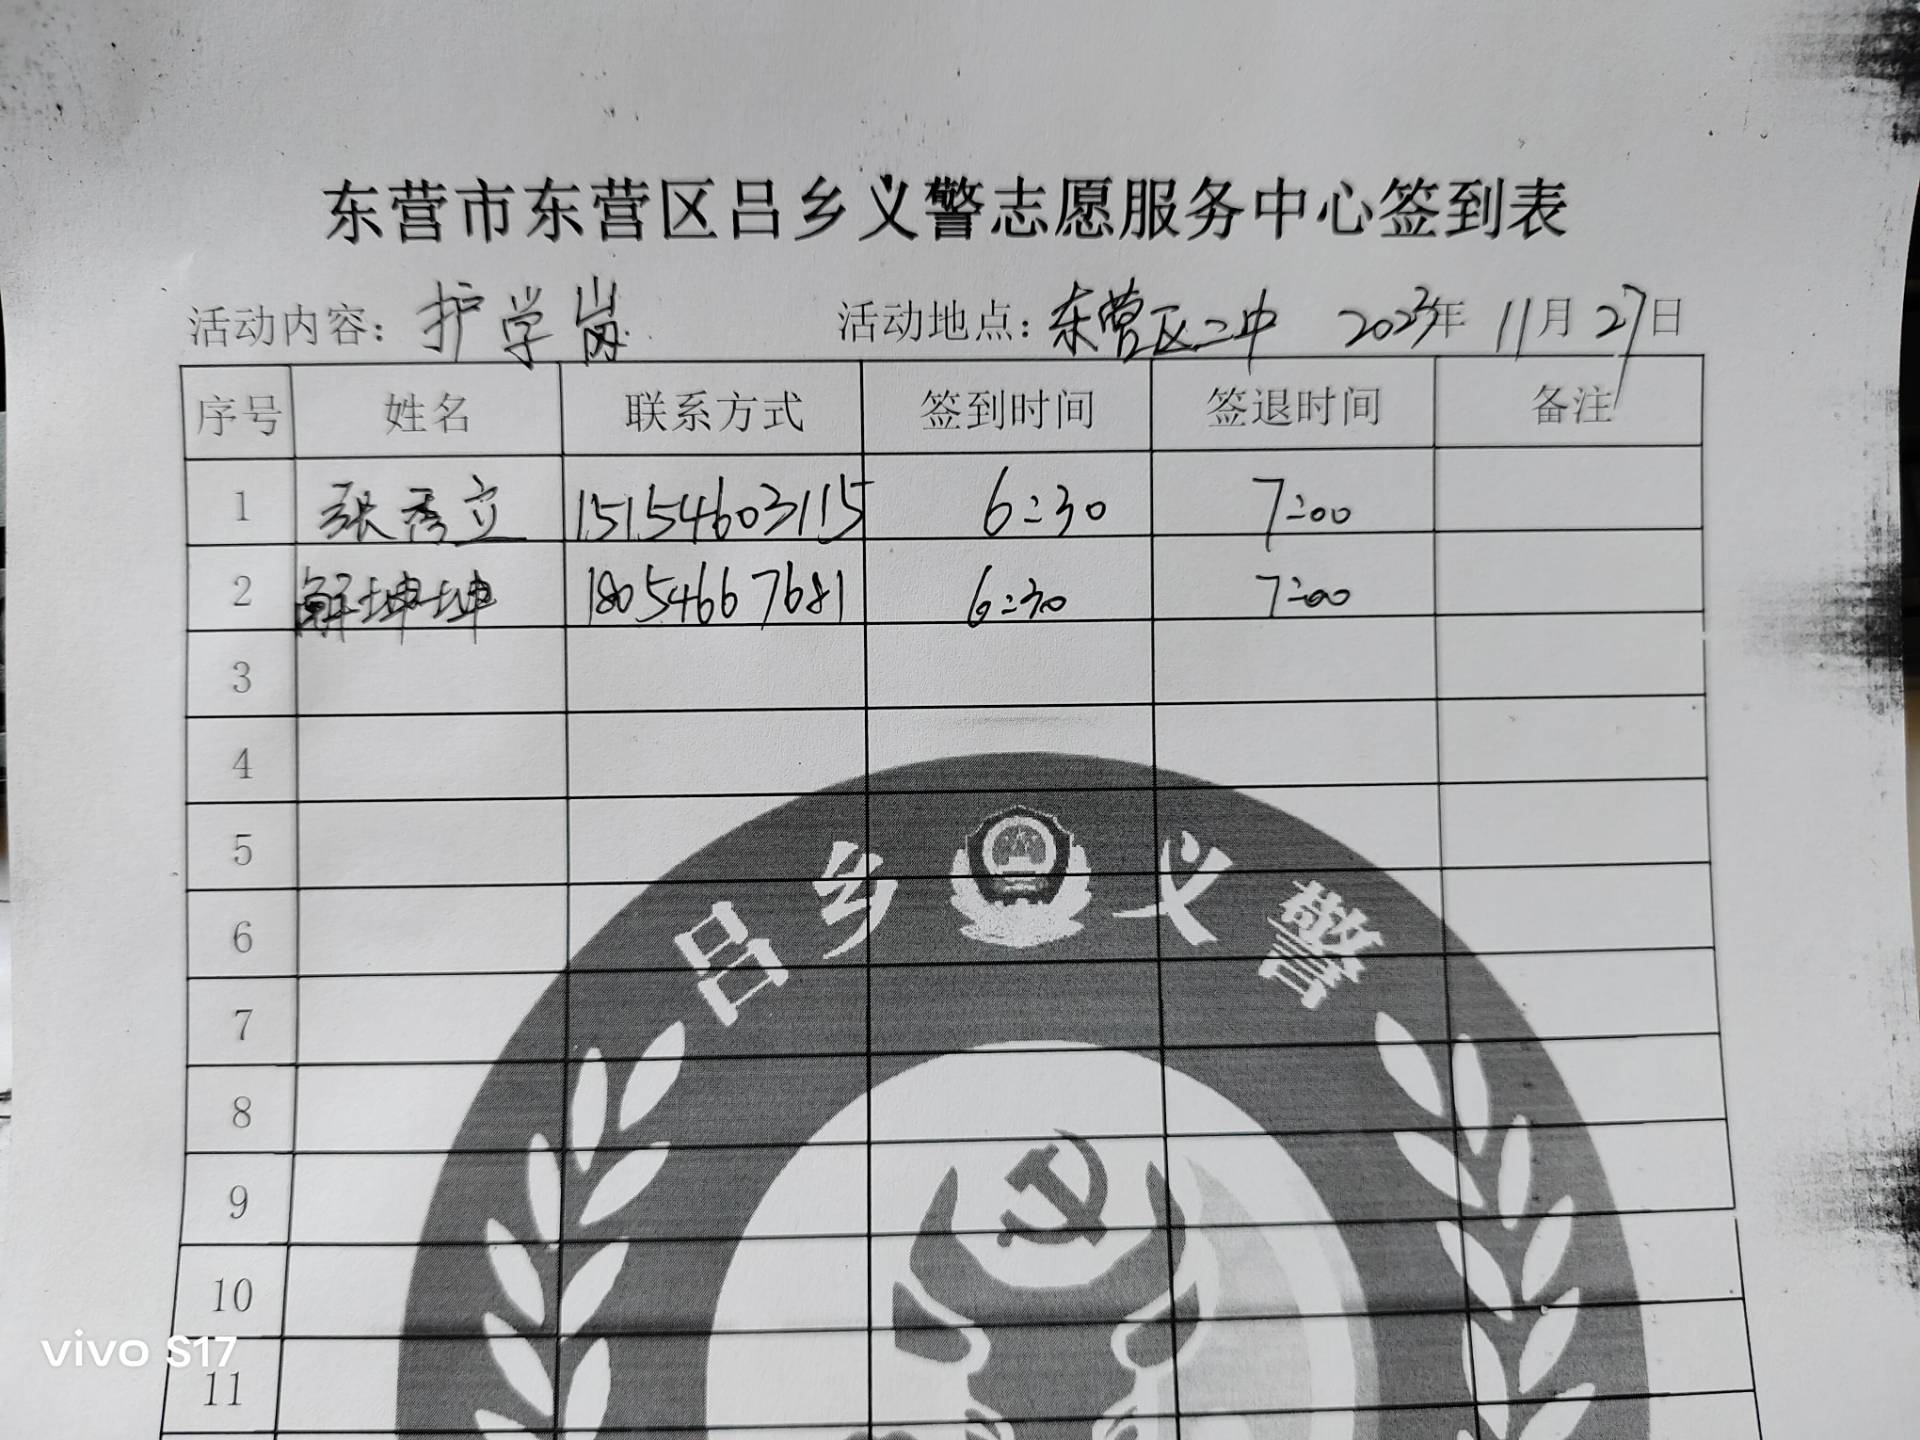 东营市东营区吕乡义警志愿服务中心签到表
活动内容：护学岗 活动地点：东营区二中 2023年 11月27日
序号 姓名 联系方式 签到时间 签退时间 备注
1 张秀立 15154603115 6:30 7:00
2 解坤坤 18054667681 6:30 7:00
3
4
5
6
7
8
9
10
11
吕乡义警
vivo S17